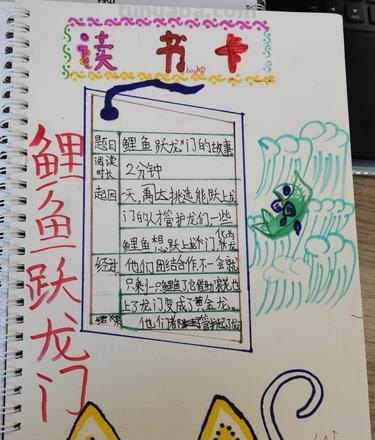 读书卡
book
鲤鱼跃龙门
题目 鲤鱼跃龙门的故事
阅读时长 2分钟
起因 一天,禹大挑选能跃上龙
门的人才管护龙们一些
鲤鱼想跃上龙门化为龙
经过 他们团结合作不一会就
只剩一只鲤鱼了它借助浪花也
上了龙门变成了黄金龙。
结果 他们都管护起了龙